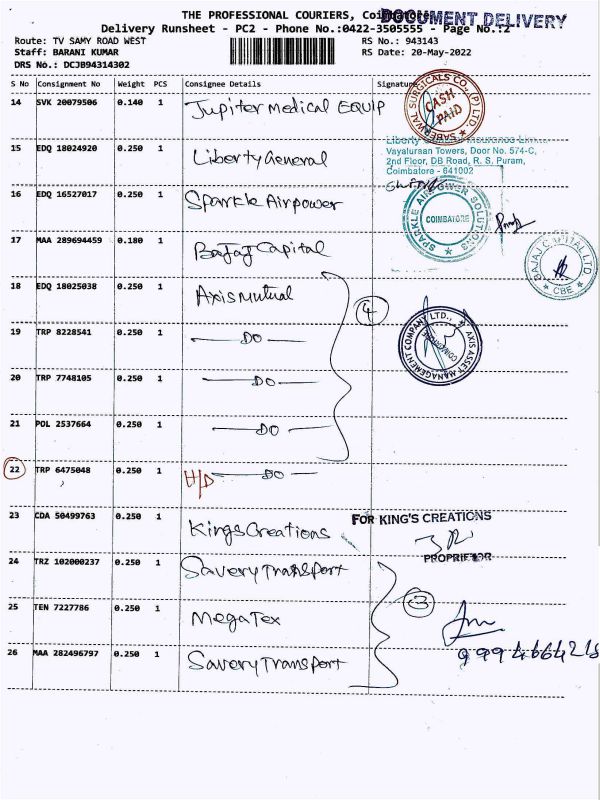 THE PROFESSIONAL COURIERS, Coimbatore
DOCUMENT DELIVERY
Delivery Runsheet - PC2 - Phone No.:0422-3505555 - Page No.:2
Route: TV SAMY ROAD WEST RS No.: 943143
Staff: BARANI KUMAR RS Date: 20-May-2022
DRS No.: DCJB94314302
S No Consignment No Weight PCS Consignee Details Signature
14 SVK 20079506 0.140 1 Jupiter Medical EQUIP
SABERWAL SURGICALS CO. (P) LTD.
CASH PAID
15 EDQ 18024920 0.250 1 Liberty General
Liberty General Insurance Limited
Vayaluraan Towers, Door No. 574-C,
2nd Floor, DB Road, R. S. Puram,
Coimbatore - 641002
16 EDQ 16527017 0.250 1 Sparkle Airpower
SPARKLE AIRPOWER SOLUTIONS
COIMBATORE
17 MAA 289694459 0.180 1 Bajaj Capital
BAJAJ CAPITAL LTD
CBE
18 EDQ 18025038 0.250 1 Axis Mutual
4
AXIS ASSET MANAGEMENT COMPANY LTD.,
COIMBATORE
19 TRP 8228541 0.250 1 DO
20 TRP 7748105 0.250 1 DO
21 POL 2537664 0.250 1 DO
22 TRP 6475048 0.250 1 H/D DO
23 CDA 50499763 0.250 1 Kings Creations
FOR KING'S CREATIONS
PROPRIETOR
24 TRZ 102000237 0.250 1 Savery Transport
3
25 TEN 7227786 0.250 1 Mega Tex
26 MAA 282496797 0.250 1 Savery Transport